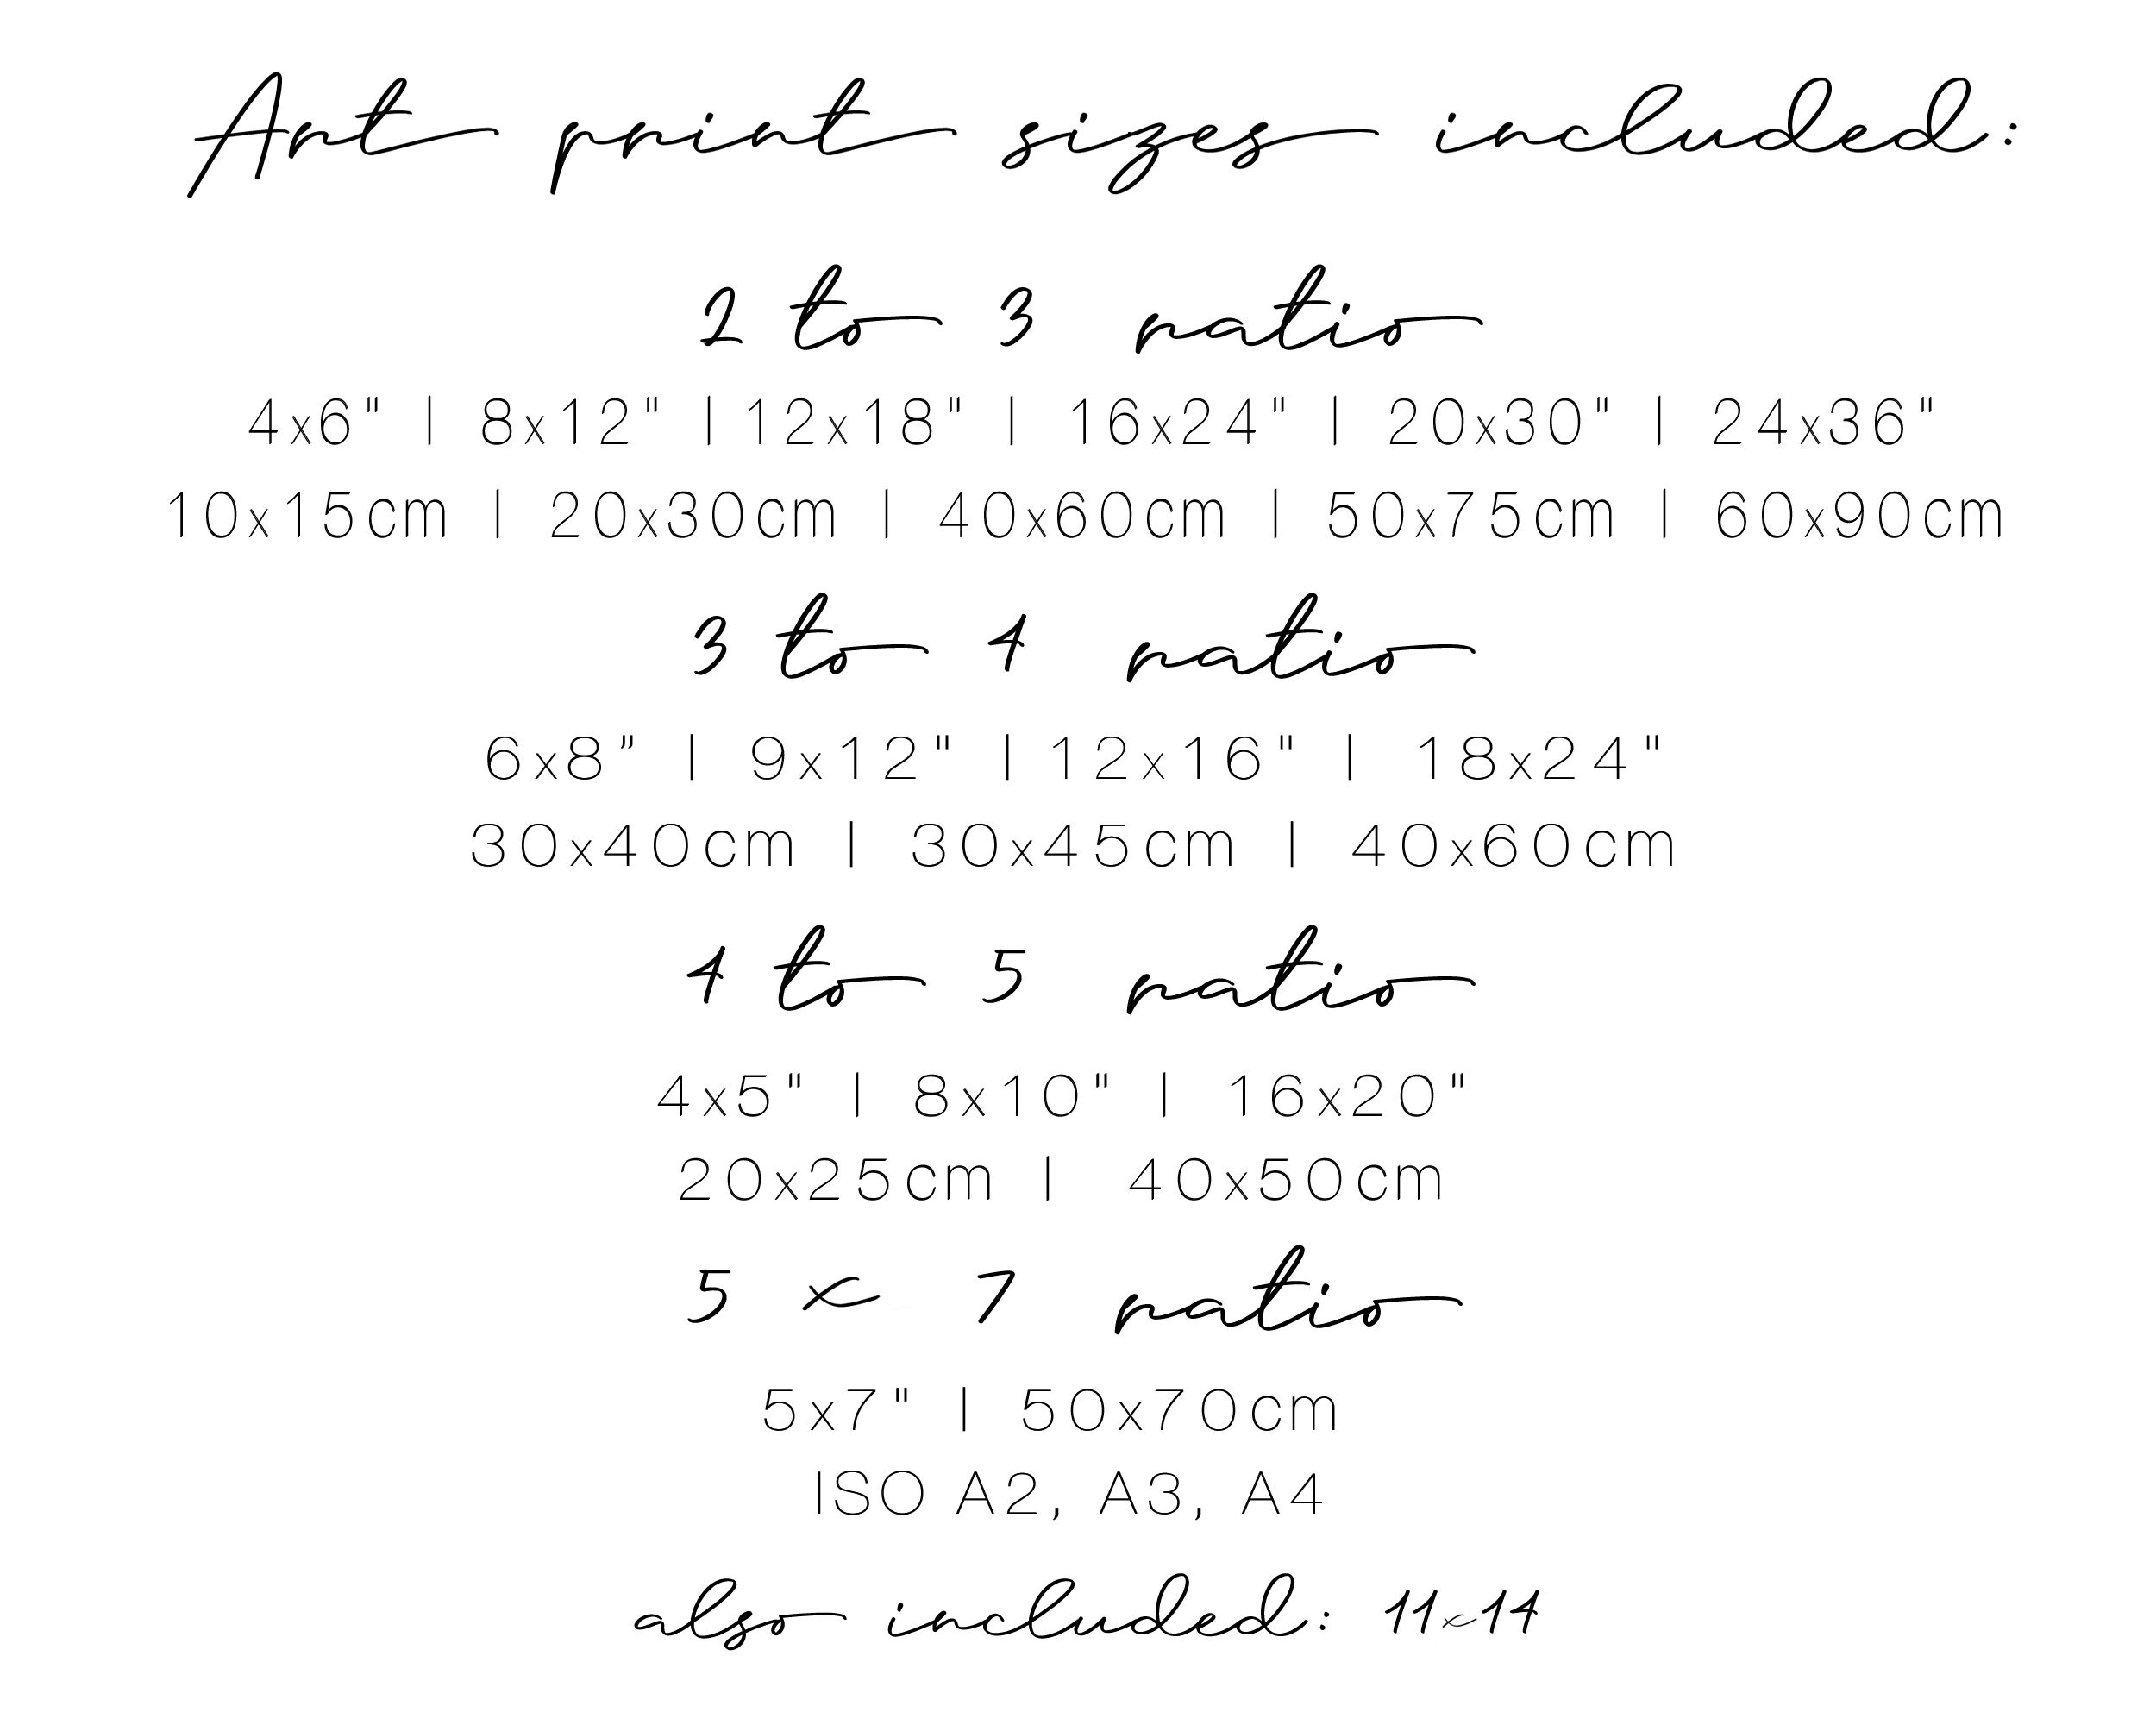 Art print sizes included:
2 to 3 ratio
4x6" | 8x12" | 12x18" | 16x24" | 20x30" | 24x36"
10x15cm | 20x30cm | 40x60cm | 50x75cm | 60x90cm
3 to 4 ratio
6x8” | 9x12" | 12x16" | 18x24"
30x40cm | 30x45cm | 40x60cm
4 to 5 ratio
4x5" | 8x10" | 16x20"
20x25cm | 40x50cm
5 x 7 ratio
5x7" | 50x70cm
ISO A2, A3, A4
also included: 11x14